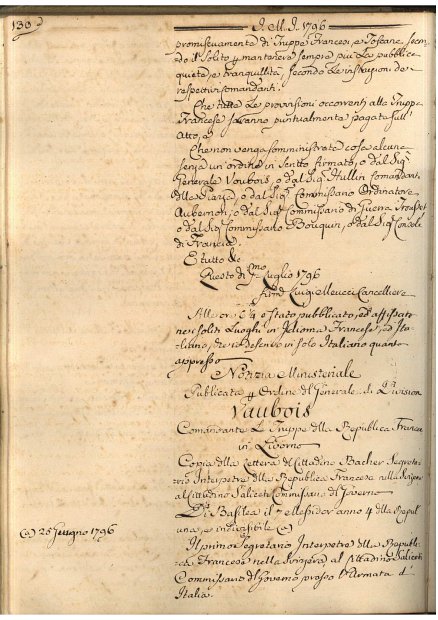 130
I. M. I. 1796
promiscuamente di Truppe Francesi, e Toscane secon
do il Solito p mantenere sempre più la pubblica
quiete, e tranquillità, secondo le istruzioni de
respettivi comandanti.
Che tutte le provvisioni occorrenti alla Truppa
Francese saranno puntualmente pagate sull'
Atto, e
Che non venga somministrata cosa alcuna
senza un'ordine in scritto firmato, o dal Sigr
Generale Vaubois, o dal Sigr Hullin Comandante
della Piazza, o dal Sigr Commissario Ordinatore
Aubernon, o dal Sigr Commissario di Guerra
o dal Sigr Commissario Bouquin, o dal Sigr Console
di Francia.
E tutto &c
Questo dì Luglio 1796
Firmo Luigi Meucci Cancelliere
Alle ore è stato pubblicato, ed affissato
nei soliti Luoghi in Idioma Francese, ed Ita
liano, che si descrive in solo Italiano quanto
appresso
Notizia Ministeriale
Pubblicata p Ordine del Generale di Divisione
Vaubois
Comandante le Truppe della Repubblica Francese
in Livorno
Copia della Lettera del Cittadino Bacher Segreta
rio Interpetre della Repubblica Francese nella Svizzera
al Cittadino Saliceti Commissario del Governo
Di Basilea il 7 Messidor anno 4 della Repub
una, e indivisibile (a)
(a) 25 Giugno 1796
Il primo Segretario Interpetre della Repubbli
ca Francese nella Svizzera, al Cittadino Saliceti
Commissario del Governo presso l'Armata d'
Italia.